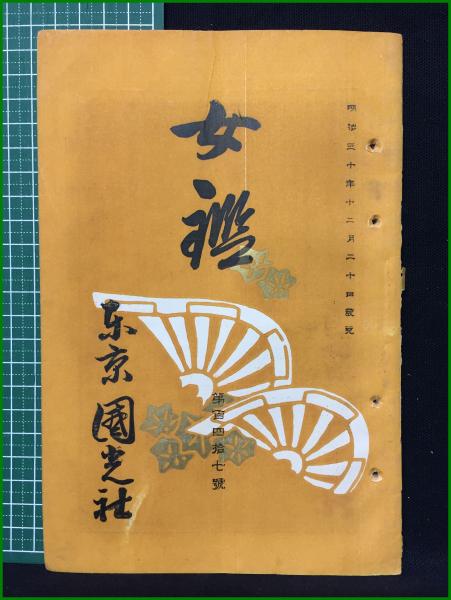 明治三十年十二月二十日發兌
女鑑
第百四拾七號
東京 國光社